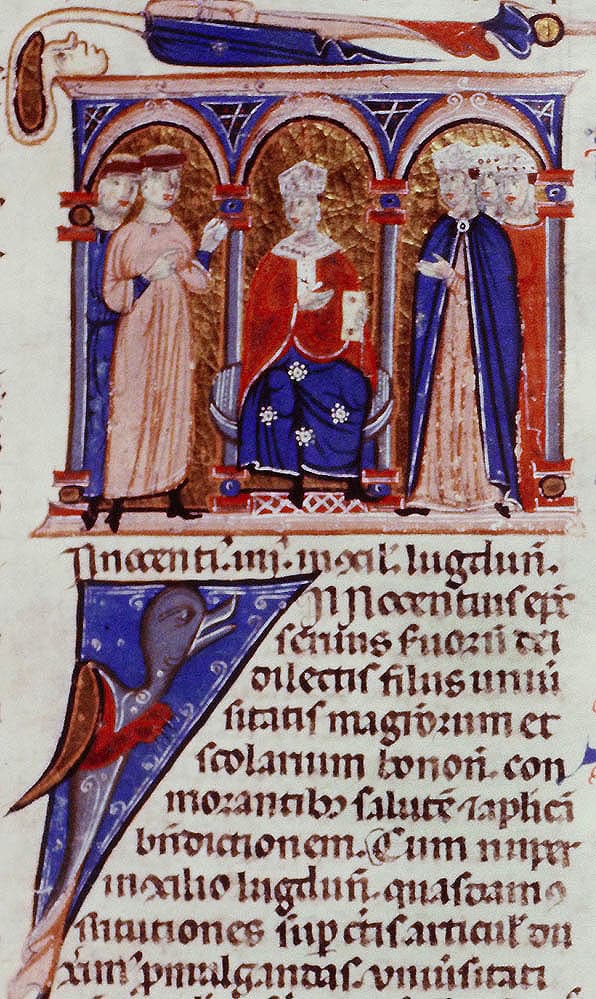 Innocenti. iiij. in ɔcil. lugdun.
INNocentius epc
seruus seruorum dei
dilectis filiis uniu
sitatis magrorum et
scolarium bonon. con
morantibȝ salutē ⁊ aplicā
bn̄dictionem. Cum nuper
in ɔcilio lugdun̄. quasdam ɔ
stitutiones sup c̄tis articul' du
xim' pmulgandas. uniu'sitati